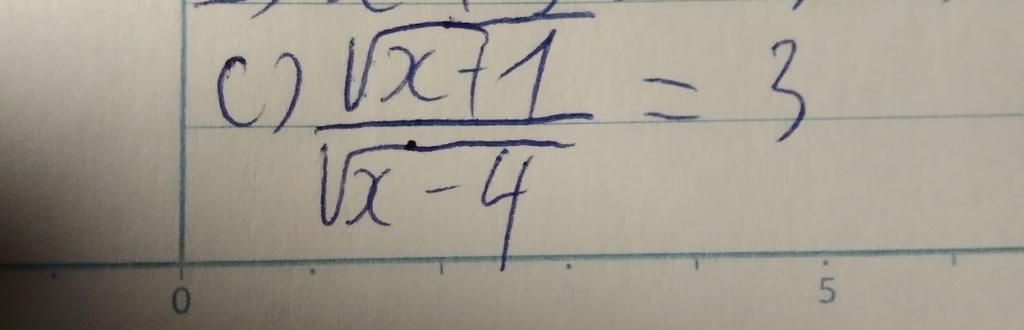 c) \frac{\sqrt{x+1}}{\sqrt{x-4}} = 3
0 5